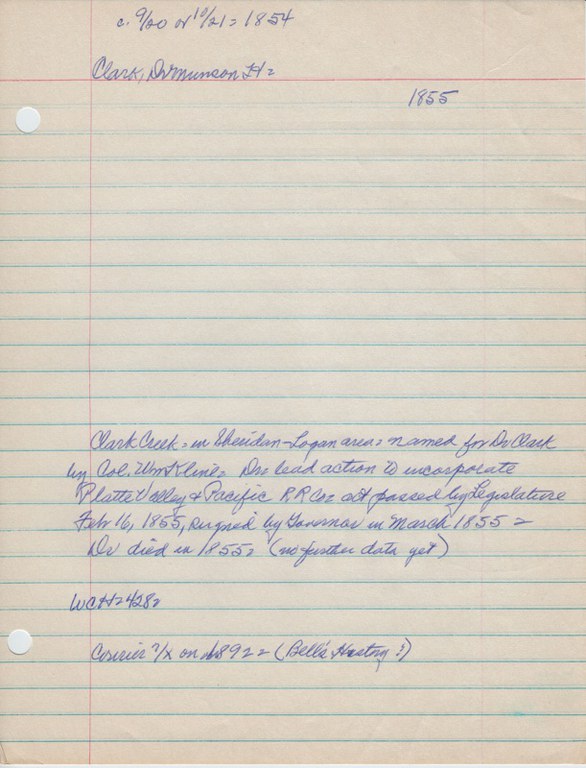 c. 9/20 or 10/21= 1854
Clark, Dr Munson H=
1855
Clark Creek= in Sheridan-Logan area= named for Dr Clark
by Col. Wm Kline= Dr lead action to incorporate
Platte Valley & Pacific RR Co= act passed by Legislature
Feb 16, 1855, signed by Governor in March 1855=
Dr died in 1855= (no further data yet)
WCH=428=
Courier on 1892= (Bell's History?)